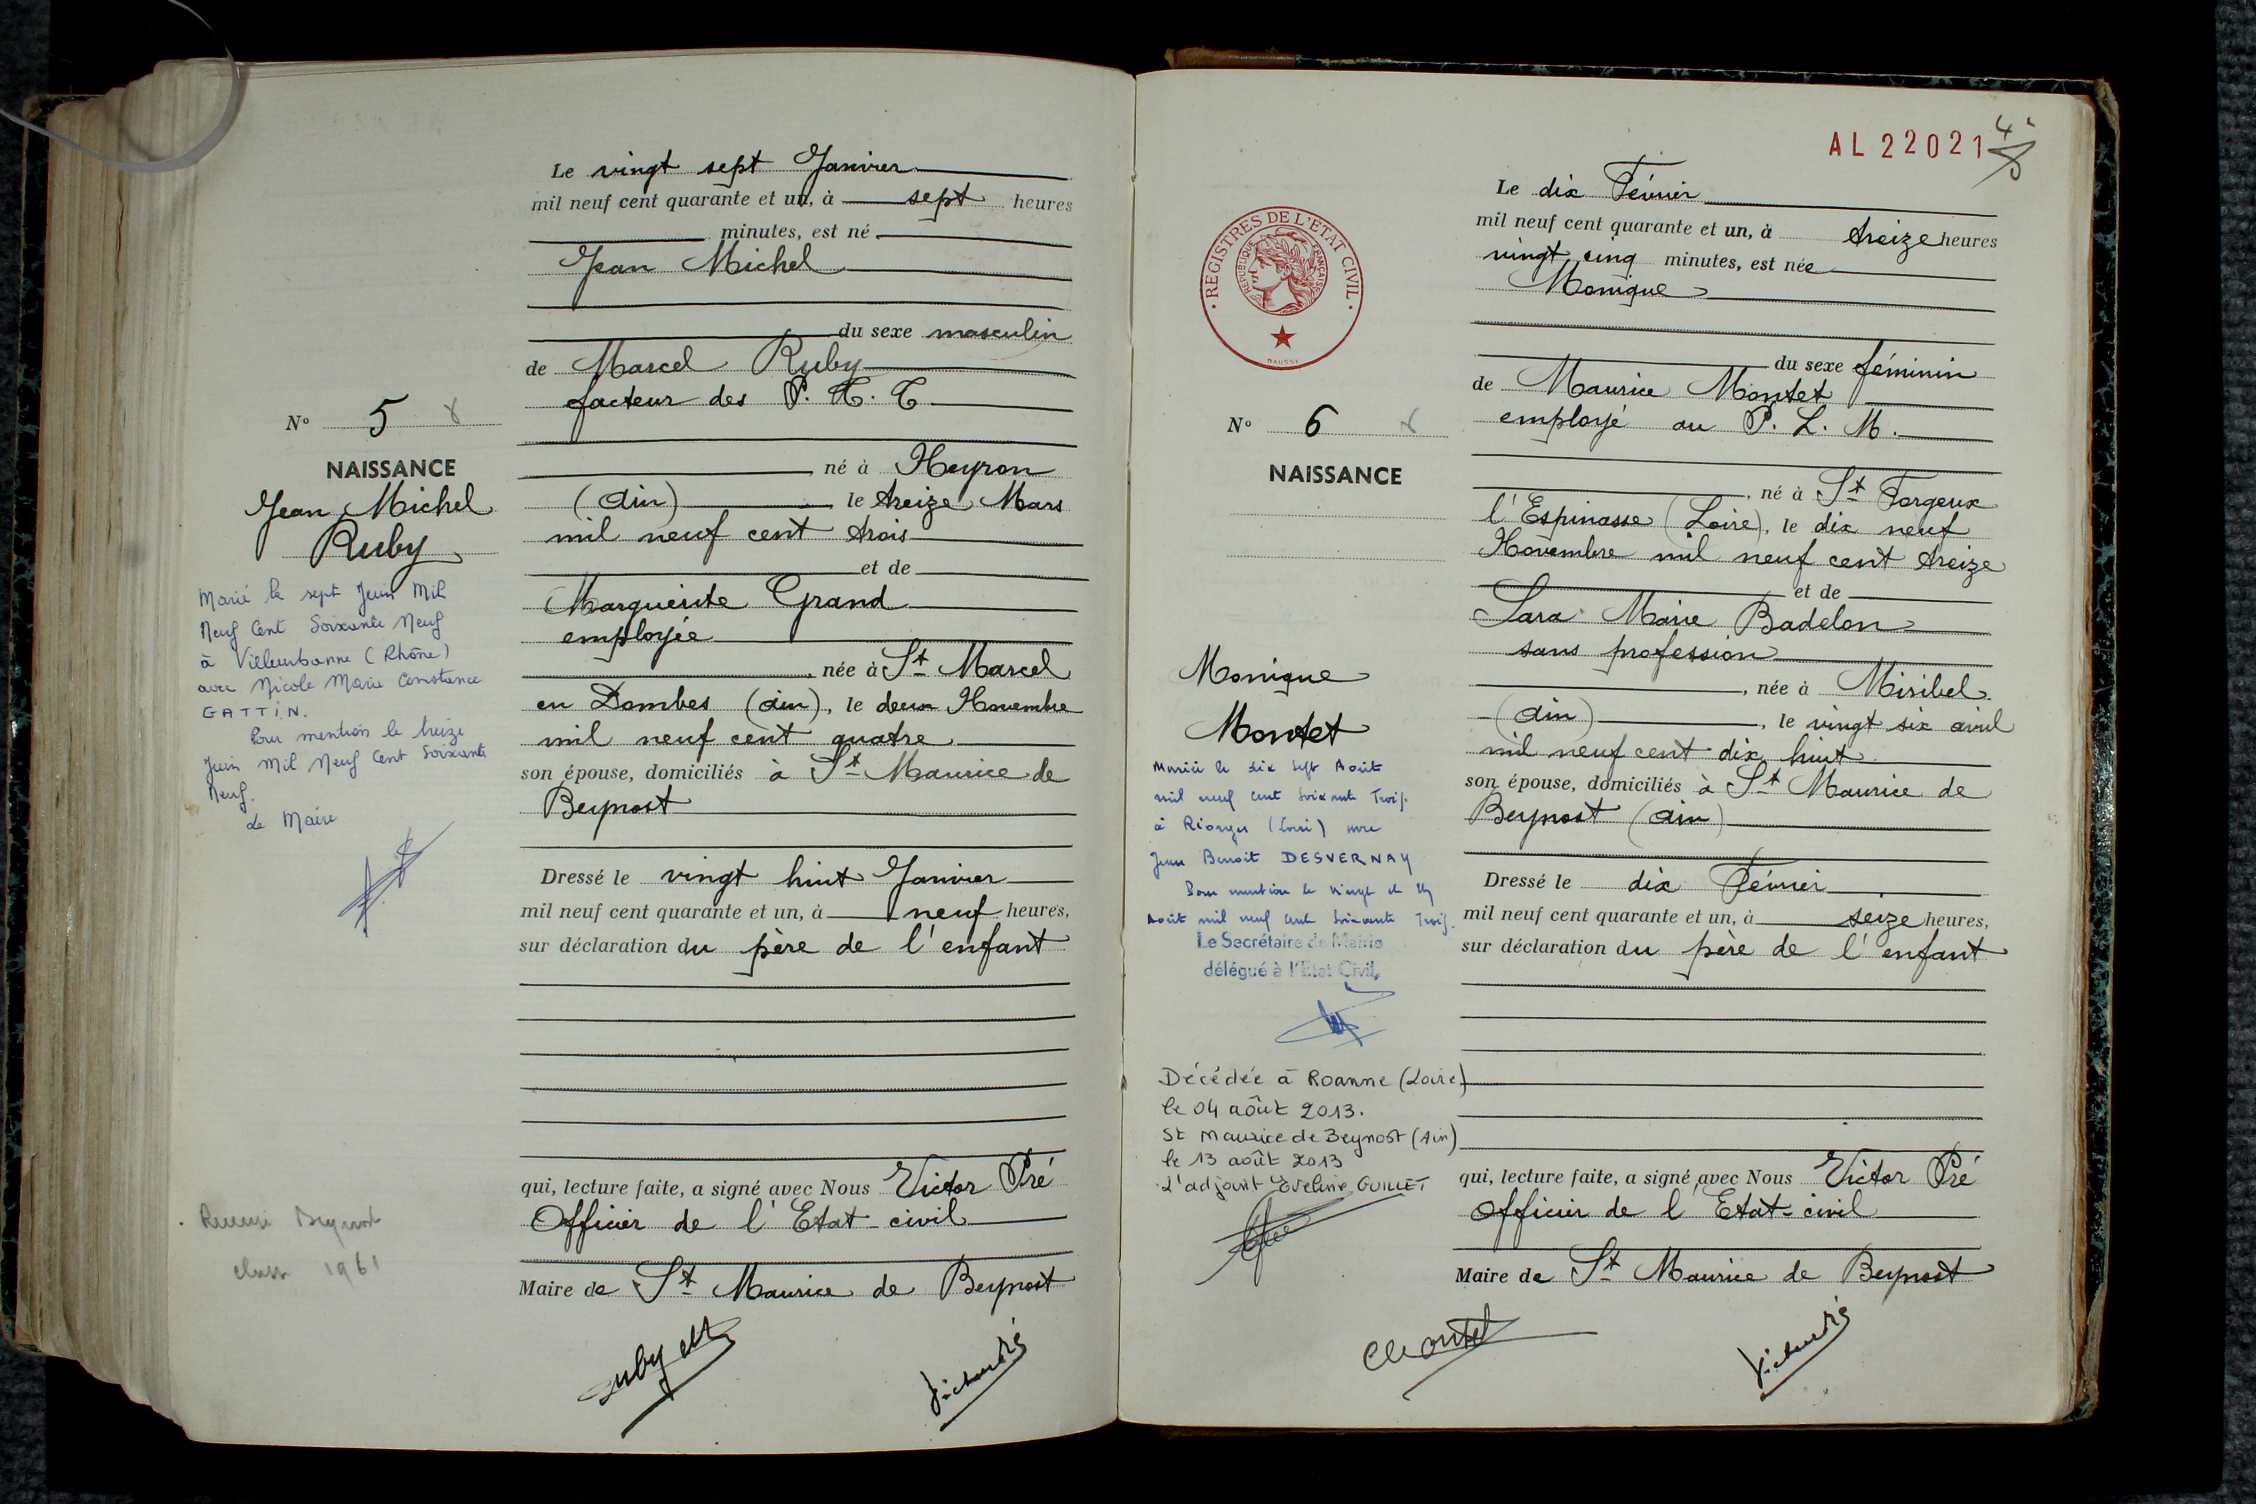 Le vingt sept Janvier
mil neuf cent quarante et un, à sept heures
minutes, est né
Jean Michel
du sexe masculin
de Marcel Ruby
facteur des P. T. T
N° 5
né à Neyron
NAISSANCE
(Ain) le treize Mars
Jean Michel
mil neuf cent trois
Ruby
et de
Marguerite Grand
employée
née à St Marcel
en Dombes (Ain), le deux Novembre
mil neuf cent quatre
son épouse, domiciliés à St Maurice de
Beynost
Marié le sept Juin Mil
Neuf Cent Soixante Neuf
à Villeurbanne (Rhône)
avec Nicole Marie Constance
GATTIN.
Pour mention le treize
Juin Mil Neuf Cent Soixante
Neuf.
Le Maire
Dressé le vingt huit Janvier
mil neuf cent quarante et un, à neuf heures,
sur déclaration du père de l'enfant
qui, lecture faite, a signé avec Nous Victor Pré
Officier de l'Etat-civil
Beynost
classe 1961
Maire de St Maurice de Beynost
AL 22021
REGISTRES DE L'ÉTAT CIVIL
RÉPUBLIQUE FRANÇAISE
Le dix Février
mil neuf cent quarante et un, à treize heures
vingt cinq minutes, est née
Monique
du sexe féminin
de Maurice Montet
employé au P. L. M.
N° 6
NAISSANCE
né à St Forgeux
l'Espinasse (Loire), le dix neuf
Novembre mil neuf cent treize
et de
Sara Marie Badelon
sans profession
, née à Miribel
(Ain), le vingt six avril
mil neuf cent dix huit
son épouse, domiciliés à St Maurice de
Beynost (Ain)
Monique
Montet
Mariée le dix sept Août
mil neuf cent soixante Trois
à Riorges (Loire) avec
Jean Benoit DESVERNAY
Pour mention le vingt et un
Août mil neuf cent soixante Trois.
Le Secrétaire de Mairie
délégué à l'Etat Civil,
Décédée à Roanne (Loire)
le 04 août 2013.
St Maurice de Beynost (Ain)
le 13 août 2013
L'adjoint Eveline GUILLET
Dressé le dix Février
mil neuf cent quarante et un, à seize heures,
sur déclaration du père de l'enfant
qui, lecture faite, a signé avec Nous Victor Pré
Officier de l'Etat-civil
Maire de St Maurice de Beynost